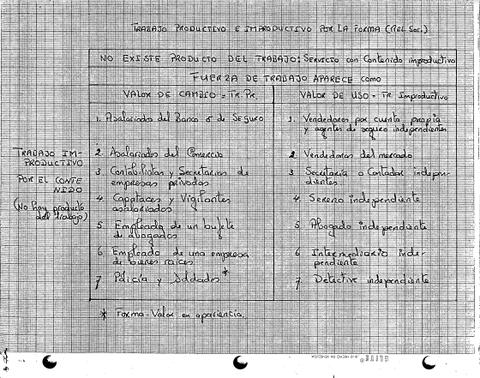 TRABAJO PRODUCTIVO E IMPRODUCTIVO POR LA FORMA (REL. SOC.)
NO EXISTE PRODUCTO DEL TRABAJO: Servicio con Contenido improductivo
FUERZA DE TRABAJO APARECE como
VALOR DE CAMBIO = TR. PR.
VALOR DE USO = TR. Improductivo
TRABAJO IM-
PRODUCTIVO
POR EL CONTE
NIDO
(No hay producto
del trabajo)
1. Asalariados del Banco o de Seguro
1. Vendedores por cuenta propia
y agentes de seguro independientes
2. Asalariados del Comercio
2. Vendedores del mercado
3. Contabilistas y Secretarias de
empresas privadas
3. Secretaria o Contador indepen-
dientes.
4. Capataces y Vigilantes
asalariados
4. Sereno independiente
5. Empleado de un bufete
de abogados
5. Abogado independiente
6. Empleado de una empresa
de bienes raíces
6. Intermediario inde-
pendiente
7. Policía y Soldados *
7. Detective independiente
* Forma-Valor en apariencia.